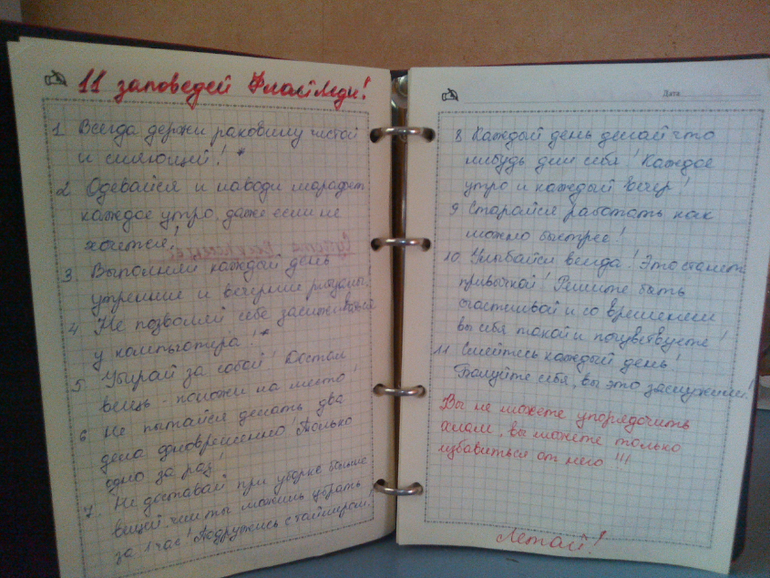 11 заповедей ФлайЛеди!
1. Всегда держи раковину чистой
и сияющей! *
2. Одевайся и наводи марафет
каждое утро, даже если не
хочется!
3. Выполняй каждый день
утренние и вечерние рутины!
4. Не позволяй себе засиживаться
у компьютера! *
5. Убирай за собой! Достал
вещь - положи на место!
6. Не пытайся делать два
дела одновременно! Только
одно за раз!
7. Не доставай при уборке больше
вещей чем ты можешь убрать
за 1 час! Подружись с таймером!
Дата
8 Каждый день делай что
нибудь для себя! Каждое
утро и каждый вечер!
9 Старайся работать как
можно быстрее!
10 Улыбайся всегда! Это станет
привычкой! Решите быть
счастливой и со временем
вы себя такой и почувствуете!
11 Смейтесь каждый день!
Балуйте себя, вы это заслужили!
Вы не можете упорядочить
хлам, вы можете только
избавиться от него!!!
Летай!